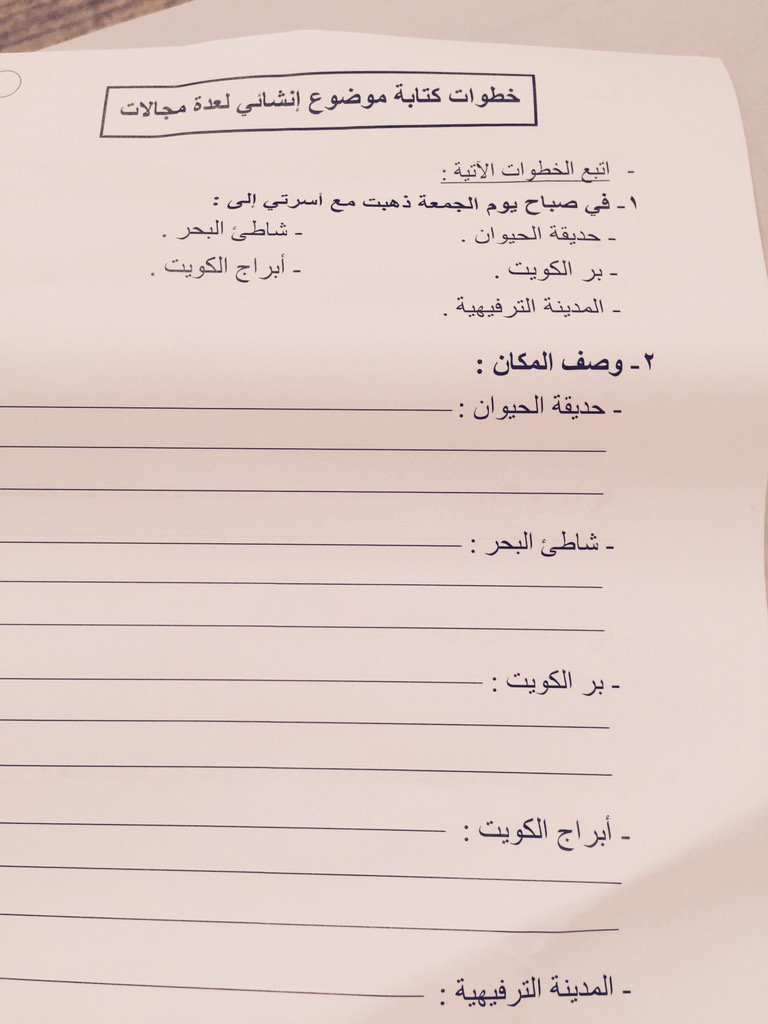 خطوات كتابة موضوع إنشائي لعدة مجالات
- اتبع الخطوات الآتية :
١- في صباح يوم الجمعة ذهبت مع أسرتي إلى :
- حديقة الحيوان . - شاطئ البحر .
- بر الكويت . - أبراج الكويت .
- المدينة الترفيهية .
٢- وصف المكان :
- حديقة الحيوان :
- شاطئ البحر :
- بر الكويت :
- أبراج الكويت :
- المدينة الترفيهية :